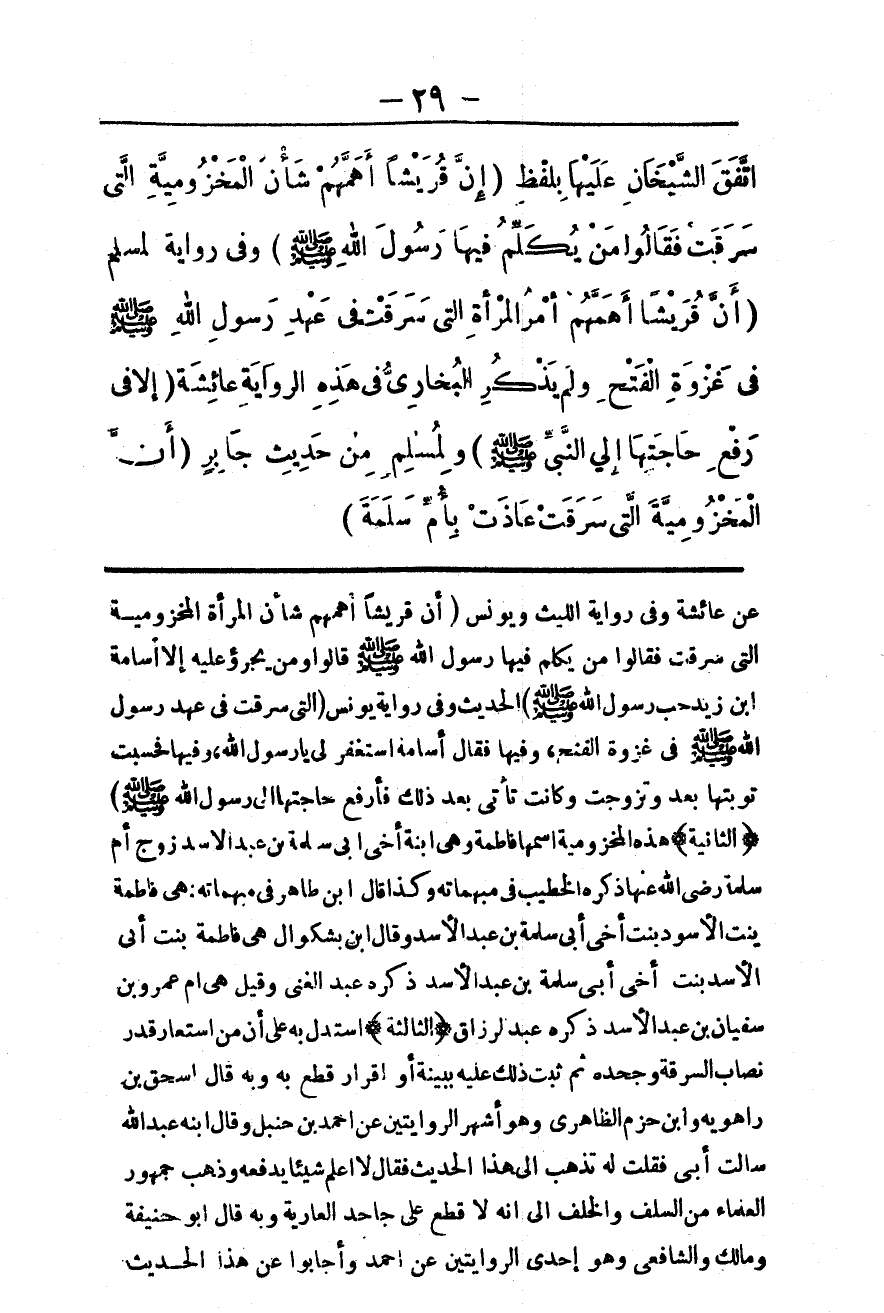 - ٢٩ -
اتَّفَقَ الشَّيْخَانِ عَلَيْهَا بِلَفْظِ (إِنَّ قُرَيْشاً أَهَمَّهُمْ شَأْنَ الْمَخْزُومِيَّةِ الَّتِى
سَرَقَتْ فَقَالُوا مَنْ يُكَلِّمُ فِيهَا رَسُولَ اللهِ ﷺ ) وفى رواية لمسلم
(أَنَّ قُرَيْشًا أَهَمَّهُمْ أمْرُ المْرْأةِ التى سَرَقَتْ فى عَهْدِ رَسولِ اللهِ ﷺ
فى غَزْوَةِ الْفَتْحِ ولم يَذْكُرِ البُخارىُّ فى هَذِهِ الروايَةِ عائِشَةَ (إلا فى
رَفْعِ حَاجَتِهَا إلي النَّبىِّ ﷺ ) ولِمُسْلِمٍ مِنْ حَدِيثِ جَابِرٍ (أَنَّ
الْمَخْزُومِيَّةَ الَّتِى سَرَقَتْ عَاذَتْ بِأُمِّ سَلَمَةَ )
عن عائشة وفى رواية الليث ويونس (أن قريشاً أهمهم شأن المرأة المخزوميـة
التى سرقت فقالوا من يكلم فيها رسول الله ﷺ قالوا ومن يجرؤ عليه إلا أسامة
ابن زيد حب رسول الله ﷺ) الحديث وفى رواية يونس (التى سرقت فى عهد رسول
الله ﷺ فى غزوة الفتح، وفيها فقال أسامة استغفر لى يا رسول الله، وفيها فحسبت
توبتها بعد وتزوجت وكانت تأتى بعد ذلك فأرفع حاجتها الى رسول الله ﷺ)
﴿الثانية﴾ هذه المخزومية اسمها فاطمة وهى ابنة أخى ابى سلمة بن عبد الاسد زوج أم
سلمة رضى الله عنها ذكره الخطيب فى مبهماته وكذا قال ابن طاهر فى مبهماته: هى فاطمة
بنت الأسود بنت أخى أبى سلمة بن عبد الأسد وقال ابن بشكوال هى فاطمة بنت أبى
الأسد بنت أخى أبى سلمة بن عبد الأسد ذكره عبد الغنى وقيل هى ام عمرو بن
سفيان بن عبد الأسد ذكره عبد لرزاق ﴿الثالثة﴾ استدل به على أن من استعار قدر
نصاب السرقة وجحده ثم ثبت ذلك عليه ببينة أو اقرار قطع به وبه قال اسحق بن
راهويه وابن حزم الظاهرى وهو أشهر الروايتين عن احمد بن حنبل وقال ابنه عبد الله
سالت أبى فقلت له تذهب الى هذا الحديث فقال لا اعلم شيئا يدفعه وذهب جمهور
العلماء من السلف والخلف الى انه لا قطع على جاحد العارية وبه قال ابو حنيفة
ومالك والشافعى وهو إحدى الروايتين عن احمد وأجابوا عن هذا الحـديث